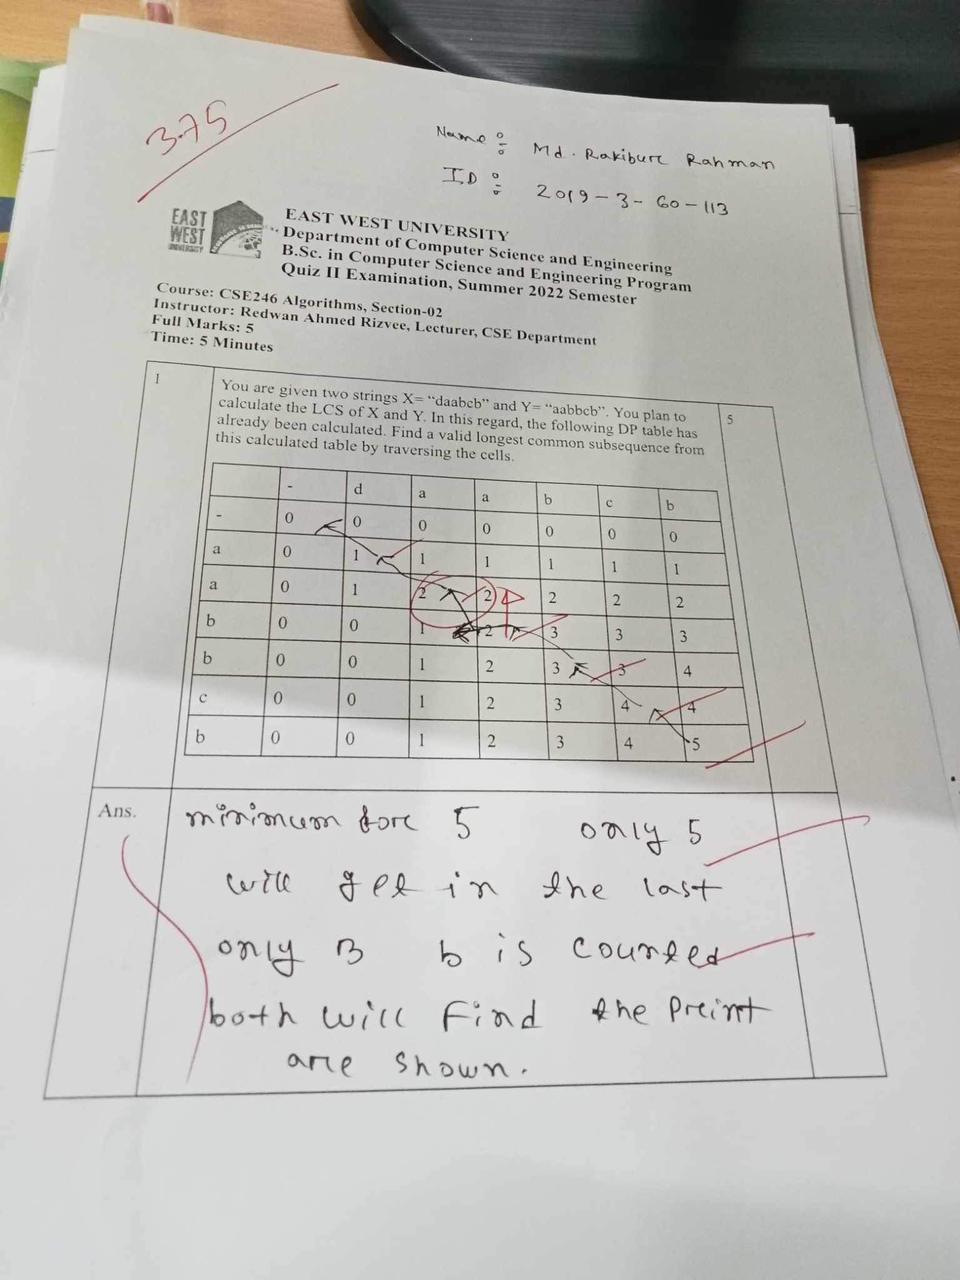 3.75
Name : Md. Rakibur Rahman
ID : 2019-3-60-113
EAST
WEST
UNIVERSITY
EAST WEST UNIVERSITY
Department of Computer Science and Engineering
B.Sc. in Computer Science and Engineering Program
Quiz II Examination, Summer 2022 Semester
Course: CSE246 Algorithms, Section-02
Instructor: Redwan Ahmed Rizvee, Lecturer, CSE Department
Full Marks: 5
Time: 5 Minutes
1 You are given two strings X= “daabcb” and Y= “aabbcb”. You plan to 5
calculate the LCS of X and Y. In this regard, the following DP table has
already been calculated. Find a valid longest common subsequence from
this calculated table by traversing the cells.
- d a a b c b
- 0 0 0 0 0 0 0
a 0 1 1 1 1 1 1
a 0 1 2 2 2 2 2
b 0 0 1 2 3 3 3
b 0 0 1 2 3 3 4
c 0 0 1 2 3 4 4
b 0 0 1 2 3 4 5
Ans. minimum for 5 only 5
will get in the last
only B b is counted
both will find the
are shown.